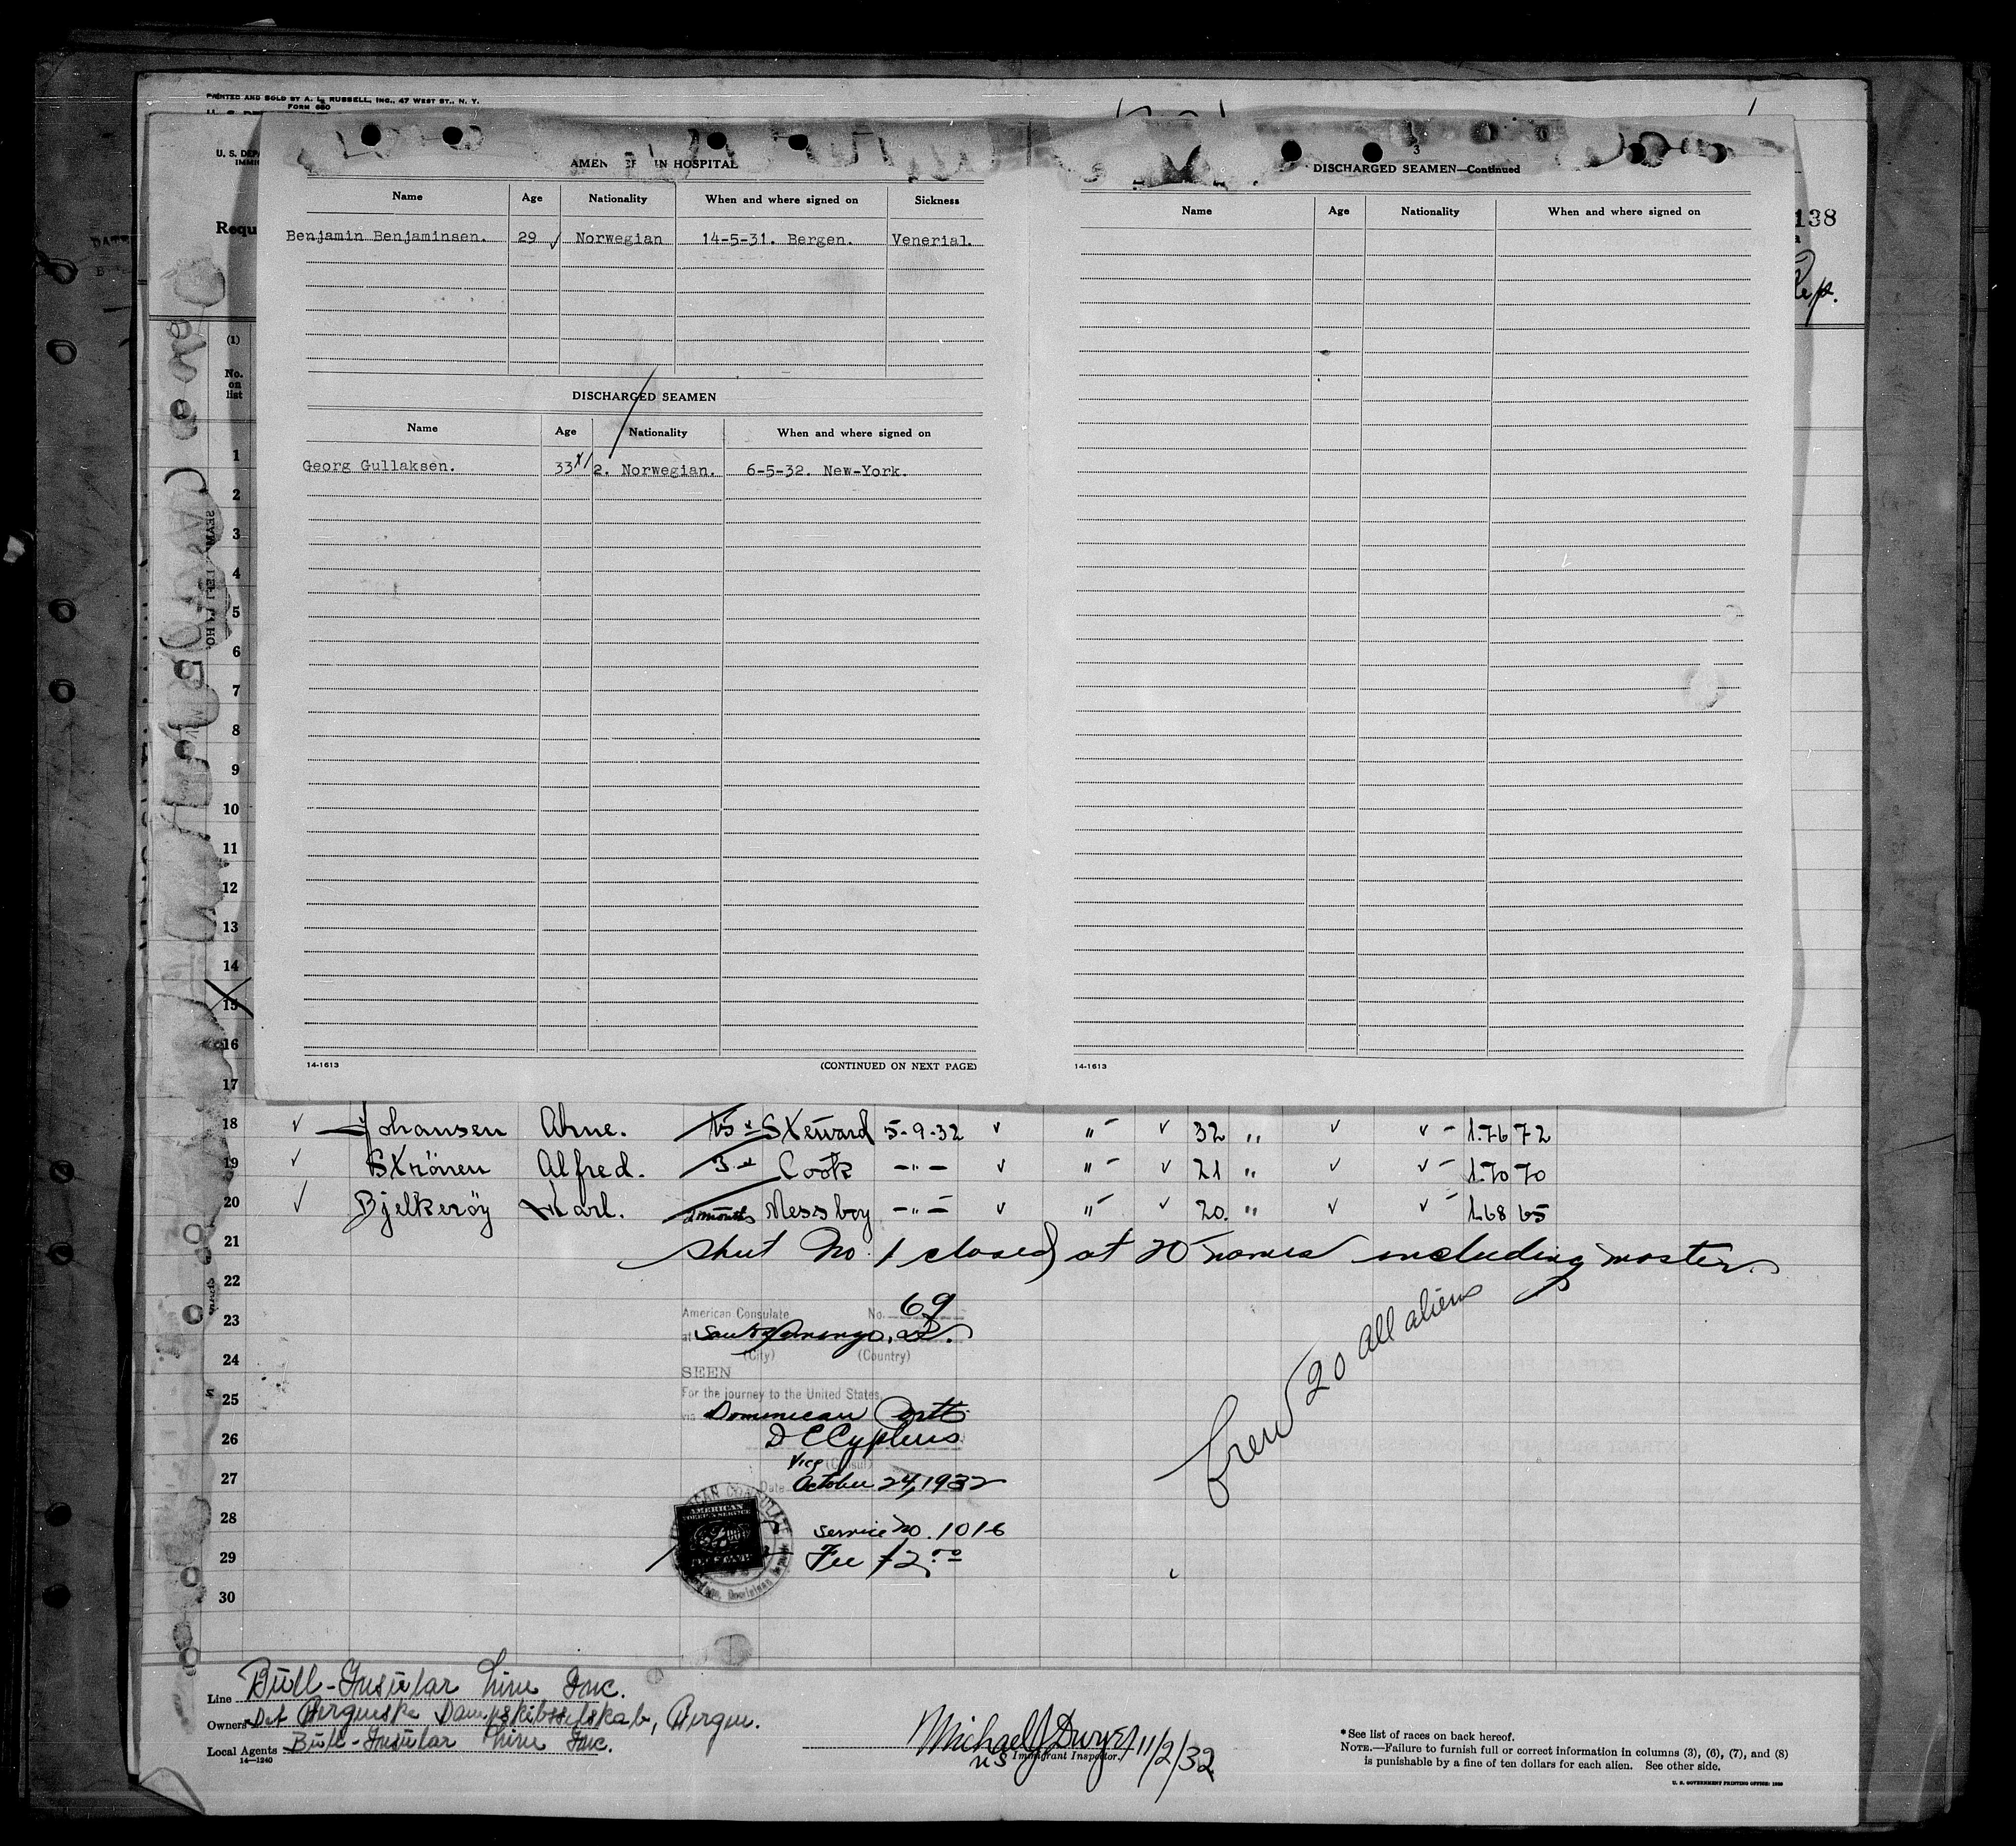 PRINTED AND SOLD BY A. L. RUSSELL, INC., 47 WEST ST., N. Y.
FORM 680
U. S. DEPA
IMMIG
Requ
138
Rep.
DATE
IN HOSPITAL
Name Age Nationality When and where signed on Sickness
Benjamin Benjaminsen. 29 ✓ Norwegian 14-5-31. Bergen. Venerial.
DISCHARGED SEAMEN
Name Age Nationality When and where signed on
Georg Gullaksen. 33 2. Norwegian. 6-5-32. New-York.
14-1613
(CONTINUED ON NEXT PAGE)
3
DISCHARGED SEAMEN—Continued
Name Age Nationality When and where signed on
14-1613
(1)
No. on list
1
2
3
4
5
6
7
8
9
10
11
12
13
14
15
16
17
18 ✓ Johansen Arne. Steward 5-9-32 ✓ " ✓ 32 " ✓ ✓ 1.76 72
19 ✓ Skrönen Alfred. Cook -"- ✓ " ✓ 21 " ✓ ✓ 1.70 70
20 ✓ Bjelkeröy Karl. Messboy -"- ✓ " ✓ 20. " ✓ ✓ 1.68 65
21 Sheet No. 1 closed at 20 names including master
22
23
24
25
26
27
28
29
30
American Consulate No. 69
at Santo Domingo, D.R.
(City) (Country)
SEEN
For the journey to the United States
via Dominican Ports
Vice (Consul)
Date October 24, 1932
AMERICAN FOREIGN SERVICE
Service No. 1016
Fee $2.00
Crew 20 all aliens
Line Bull-Insular Line Inc.
Owners Det Bergenske Dampskibsselskab, Bergen.
Local Agents Bull-Insular Line Inc.
14-1240
Michael J Dwyer 11/2/32
US Immigrant Inspector.
*See list of races on back hereof.
NOTE.—Failure to furnish full or correct information in columns (3), (6), (7), and (8)
is punishable by a fine of ten dollars for each alien. See other side.
U. S. GOVERNMENT PRINTING OFFICE: